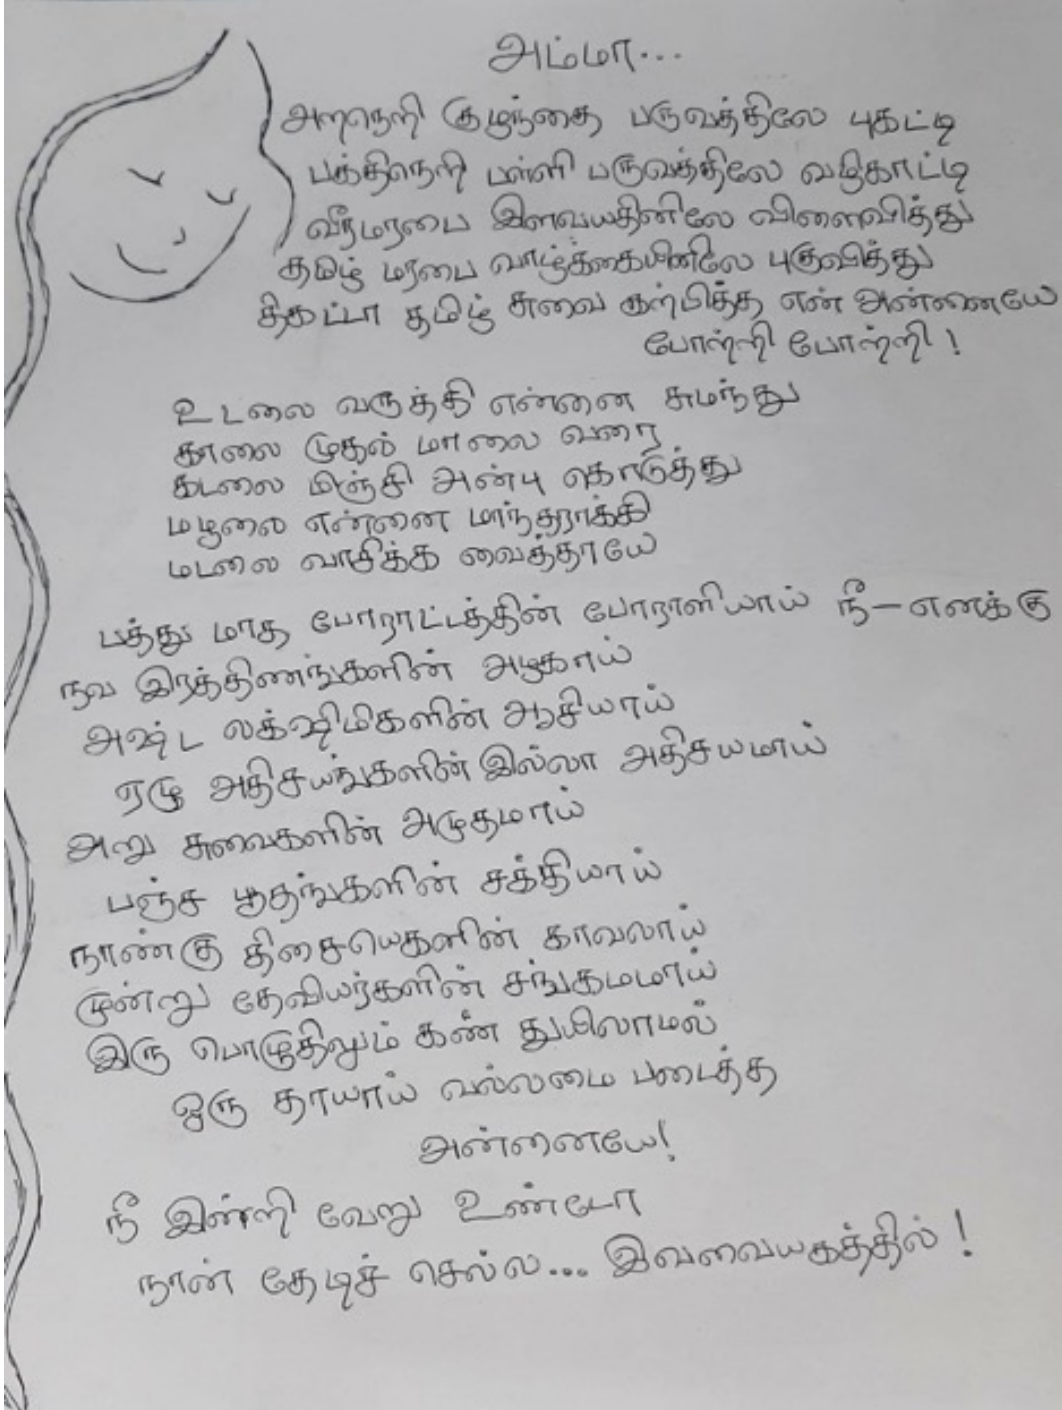 அம்மா...
அறநெறி குழந்தை பருவத்திலே புகட்டி
பக்திநெறி பள்ளி பருவத்திலே வழிகாட்டி
வீரமரபை இளவயதினிலே விளைவித்து
தமிழ் மரபை வாழ்க்கையினிலே புகுவித்து
திகட்டா தமிழ் சுவை கற்பித்த என் அன்னையே
போற்றி போற்றி !
உடலை வருத்தி என்னை சுமந்து
காலை முதல் மாலை வரை
கடலை மிஞ்சி அன்பு கொடுத்து
மழலை என்னை மாந்தராக்கி
மடலை வாசிக்க வைத்தாயே
பத்து மாத போராட்டத்தின் போராளியாய் நீ – எனக்கு
நவ இரத்திணங்களின் அழகாய்
அஷ்ட லக்ஷிமிகளின் ஆசியாய்
ஏழு அதிசயங்களின் இல்லா அதிசயமாய்
அறு சுவைகளின் அமுதமாய்
பஞ்ச பூதங்களின் சக்தியாய்
நாண்கு திசையெகளின் காவலாய்
மூன்று தேவியர்களின் சங்கமமாய்
இரு பொழுதிலும் கண் துயிலாமல்
ஒரு தாயாய் வல்லமை படைத்த
அன்னையே!
நீ இன்றி வேறு உண்டோ
நான் தேடிச் செல்ல... இவ்வையகத்தில் !